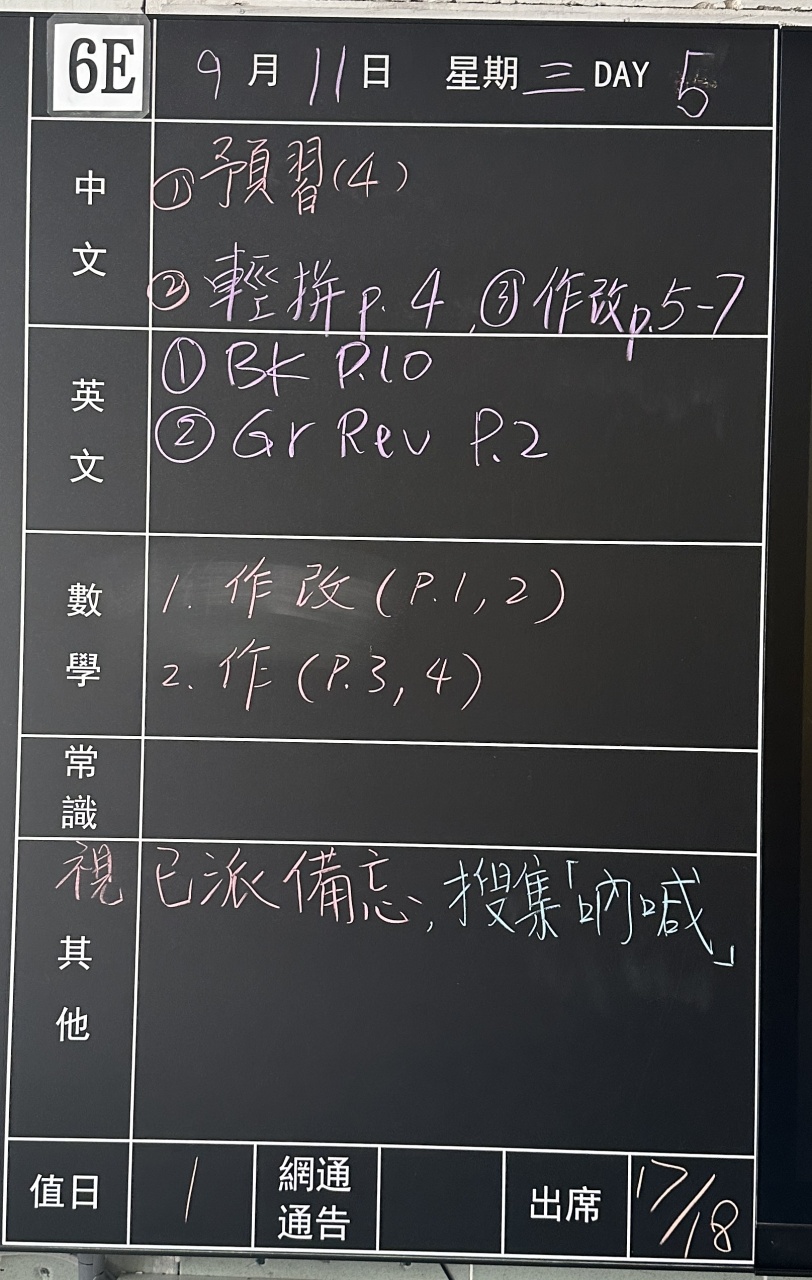 6E 9月11日 星期三 DAY 5
中文
①預習(4)
②輕拼p.4, ③作改p.5-7
英文
①BK P.10
②Gr Rev P.2
數學
1. 作改(P.1,2)
2. 作(P.3,4)
常識
視 已派備忘, 搜集「吶喊」
其他
值日 1 網通通告 出席 17/18